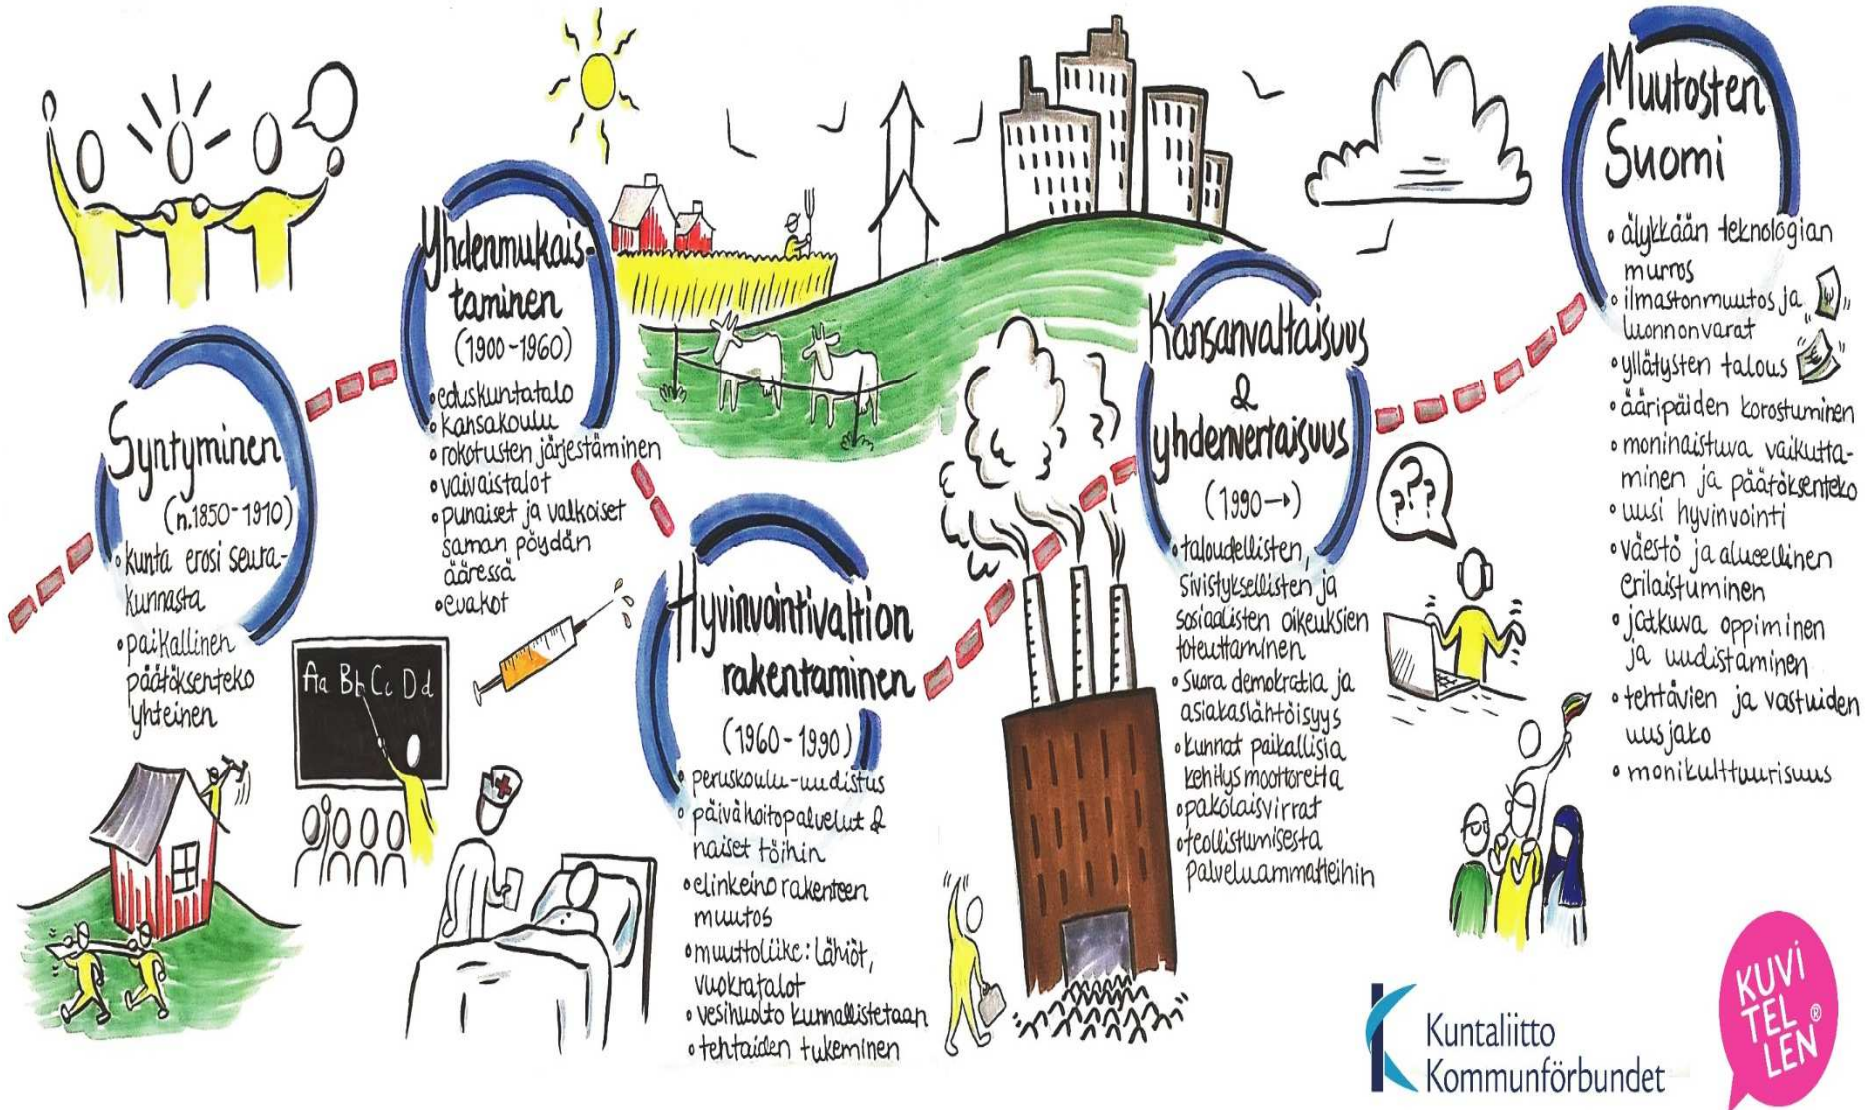 Syntyminen
(n.1850-1910)
• kunta erosi seura-
kunnasta
• paikallinen
päätöksenteko
yhteinen
Yhdenmukais-
taminen
(1900-1960)
• eduskuntatalo
• kansakoulu
• rokotusten järjestäminen
• vaivaistalot
• punaiset ja valkoiset
saman pöydän
ääressä
• evakot
Aa Bb Cc Dd
Hyvinvointivaltion
rakentaminen
(1960-1990)
• peruskoulu-uudistus
• päivähoitopalvelut &
naiset töihin
• elinkeinorakenteen
muutos
• muuttoliike: lähiöt,
vuokratalot
• vesihuolto kunnallistetaan
• tehtaiden tukeminen
Kansanvaltaisuus
&
yhdenvertaisuus
(1990→)
• taloudellisten,
sivistyksellisten ja
sosiaalisten oikeuksien
toteuttaminen
• suora demokratia ja
asiakaslähtöisyys
• kunnat paikallisia
kehitysmoottoreita
• pakolaisvirrat
• teollistumisesta
palveluammatteihin
???
Muutosten
Suomi
• älykkään teknologian
murros
• ilmastonmuutos ja
luonnonvarat
• yllätysten talous
• ääripäiden korostuminen
• moninaistuva vaikutta-
minen ja päätöksenteko
• uusi hyvinvointi
• väestö ja alueellinen
erilaistuminen
• jatkuva oppiminen
ja uudistaminen
• tehtävien ja vastuiden
uusjako
• monikulttuurisuus
Kuntaliitto
Kommunförbundet
KUVI
TEL
LEN®